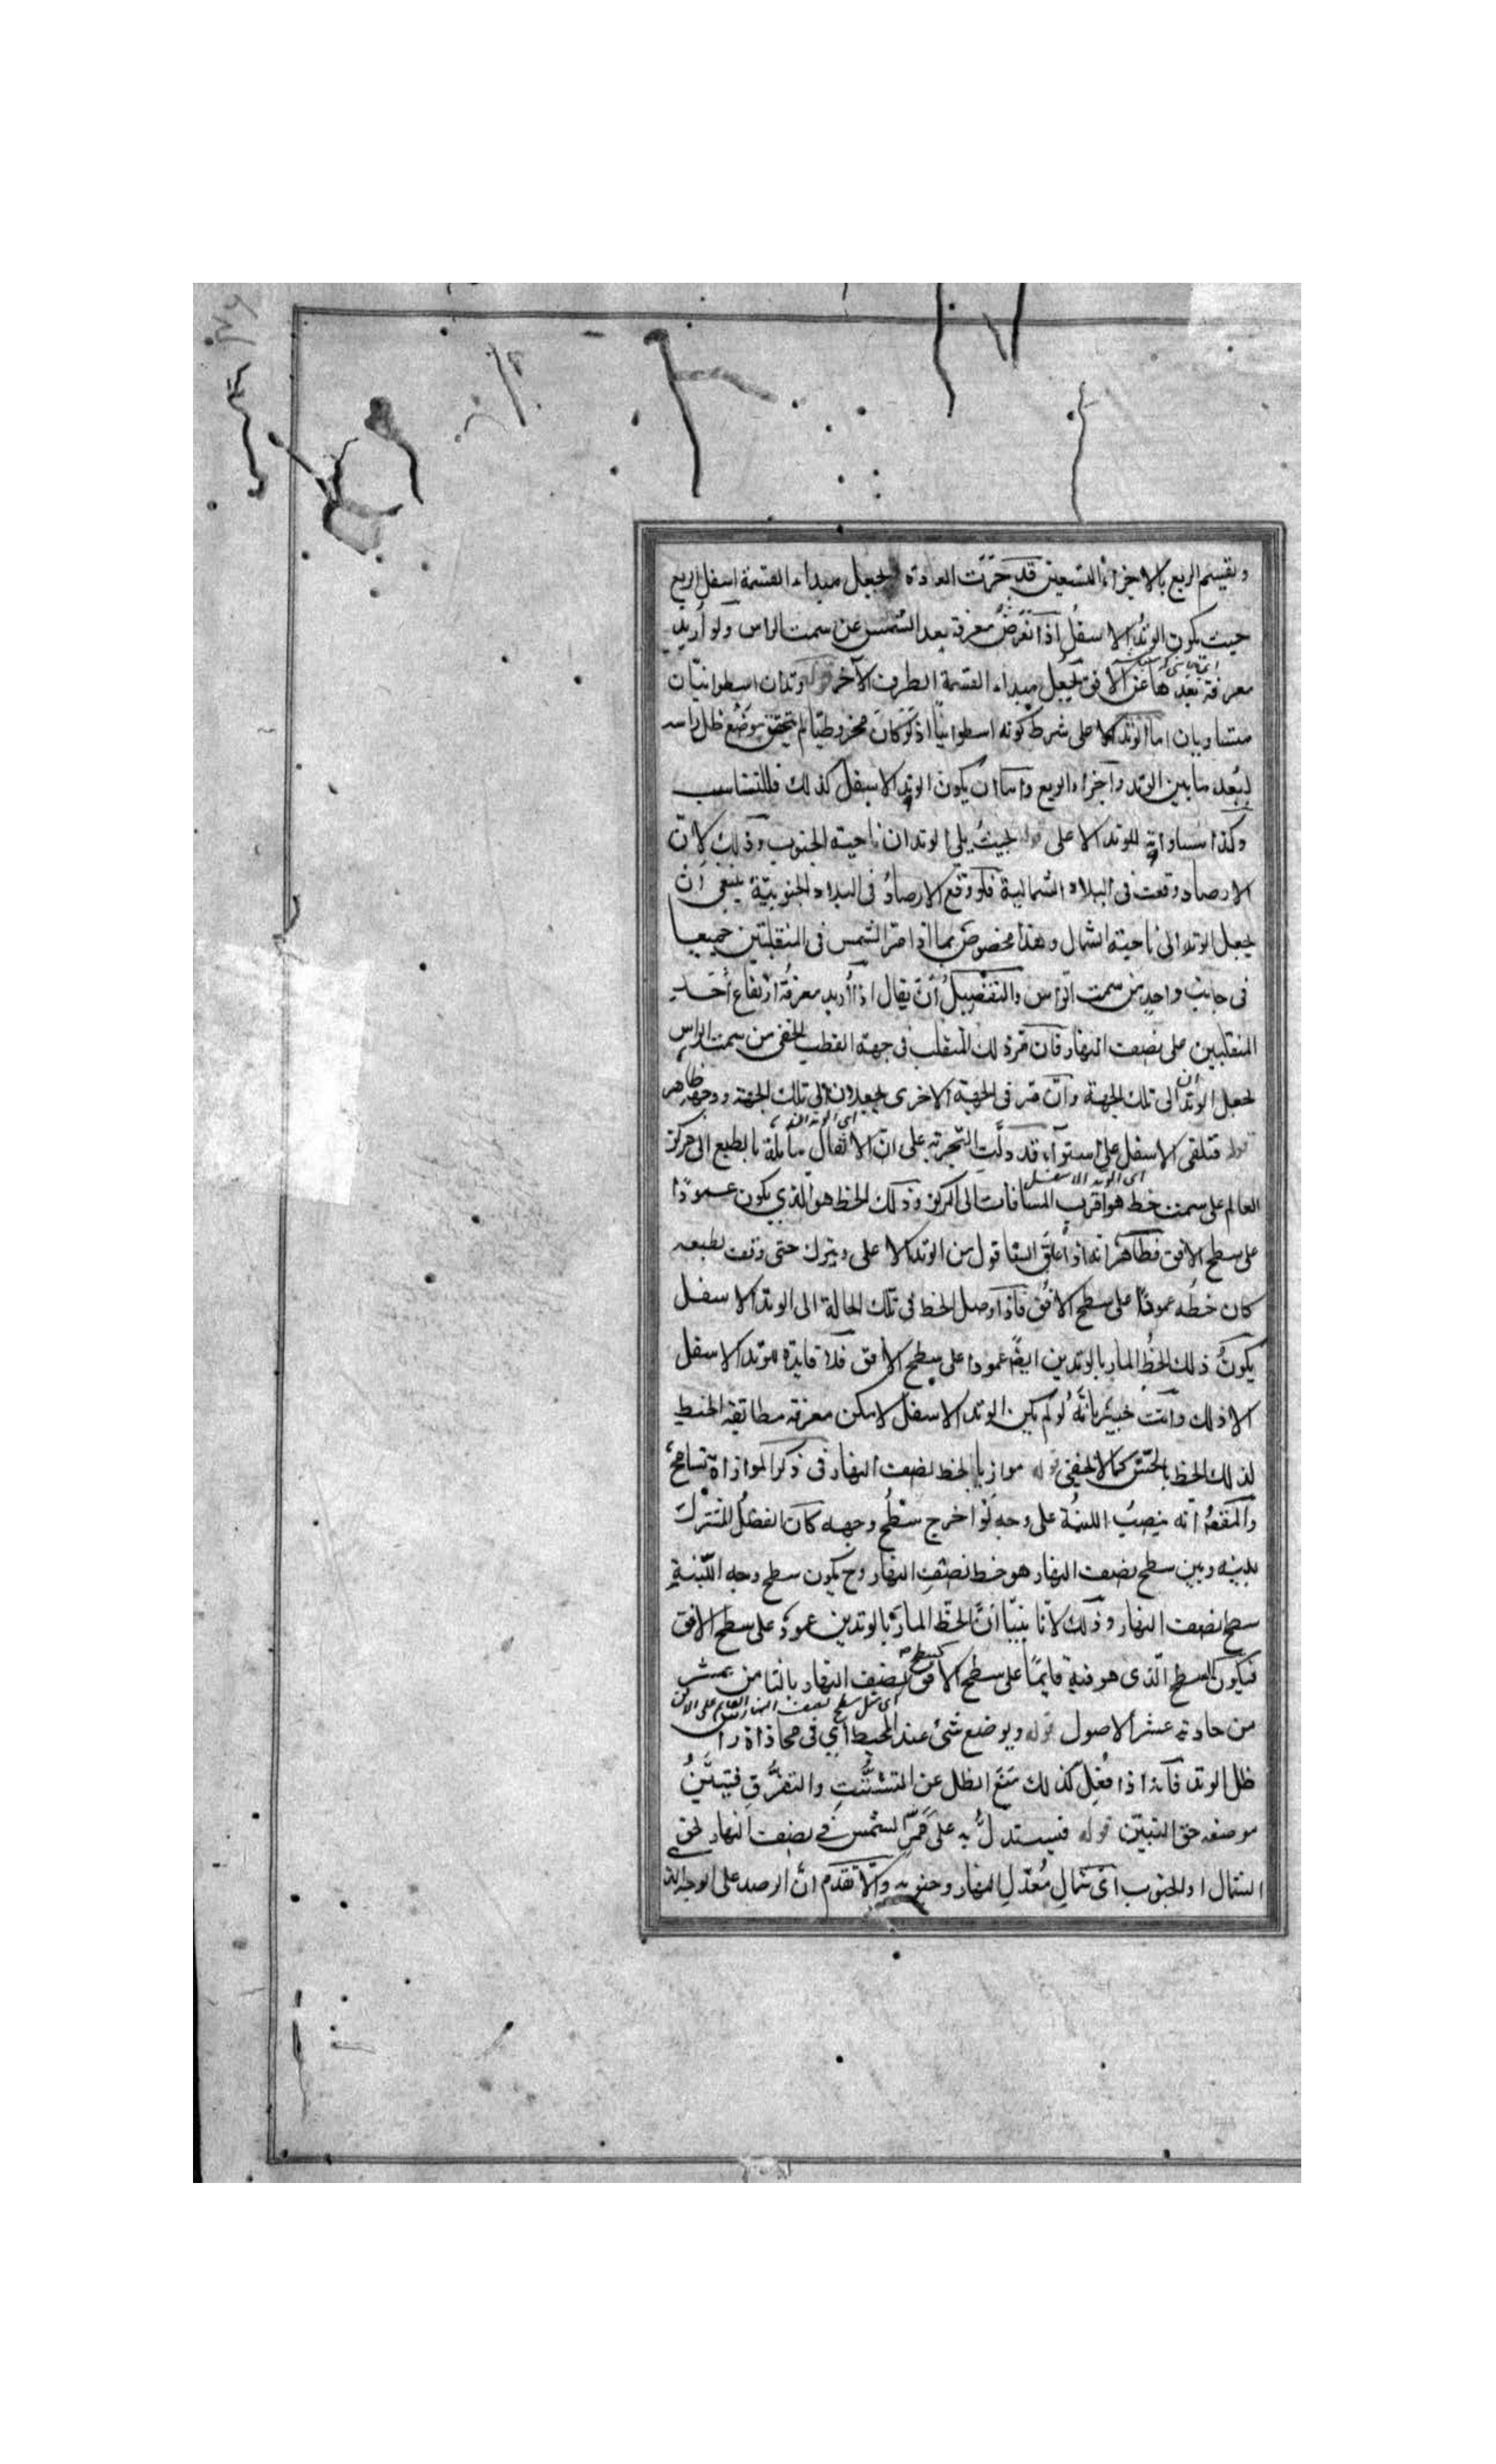 ويقسم الربع بالاجزاء التسعين قد جرت العادة بجعل مبداء القسمة اسفل الربع
حيث يكون الوتد الاسفل اذا الغرض معرفة بعد الشمس عن سمت الراس ولو اريد
معرفة بعدها عن الافق يجعل مبداء القسمة الطرف الآخر قوله وتدان اسطوانيّان
متساويان اما الوتد الاعلى شرط كونه اسطوانيّا اذ لو كان مخروطيّا لم يتحقق موضع ظل راسه
لبعد ما بين الوتد واجزاء الربع واما ان يكون الوتد الاسفل كذلك فللتناسب
وكذا مساواته للوتد الاعلى قوله بحيث يلي الوتدان ناحية الجنوب وذلك لانّ
الارصاد وقعت في البلاد الشمالية فلو وقع الارصاد في البلاد الجنوبيّة ينبغي ان
يجعل الوتد الى ناحية الشمال وهذا مخصوص بما اذا مرّ الشمس في المنقلبين جميعا
في جانب واحد من سمت الراس والتفصيل ان يقال اذا اريد معرفة ارتفاع احد
المنقلبين على نصف النهار فان مرّ ذلك المنقلب في جهة القطب الخفي من سمت الراس
يجعل الوتدان الى تلك الجهة وان مرّ في الجهة الاخرى يجعلان الى تلك الجهة ووجهه ظاهر
قوله فتلقى الاسفل على استواء قد دلّت التجربة على انّ الاثقال مائلة بالطبع الى مركز
اى الوتد الاسفل
العالم على سمت خط هو اقرب المسافات الى المركز وذلك الخط هو الذي يكون عمودًا
على سطح الافق فظاهر انه اذا علّق الشاقول من الوتد الاعلى ويترك حتى وقف بطبعه
كان خطه عمودًا على سطح الافق فاذا وصل الخط في تلك الحالة الى الوتد الاسفل
يكون ذلك الخط المار بالوتدين ايضًا عمودا على سطح الافق فلا فايدة للوتد الاسفل
الا ذلك وانت خبير بانه لو لم يكن الوتد الاسفل لامكن معرفة مطابقة الخيط
لذلك الخط بالحسّ كما لا يخفى قوله موازيا لخط نصف النهار في ذكر الموازاة تسامح
والمقصود انه ينصب اللبنة على وجه لو اخرج سطح وجهه كان الفصل المشترك
بينه وبين سطح نصف النهار هو خط نصف النهار وح يكون سطح وجه اللبنة
سطح نصف النهار وذلك لانّا بيّنّا انّ الخط المارّ بالوتدين عمود على سطح الافق
فيكون السطح الذي هو فيه قايمًا على سطح الافق كسطح نصف النهار بالثامن عشر
اى مثل سطح نصف النهار القايم على الافق
من حادية عشر الاصول قوله ويوضع شئ عند المحيط اي في محاذاة راس
ظل الوتد فانه اذا فعل كذلك منع الظل عن التشتّت والتفرّق فيتبيّن
موضعه حق التبيّن قوله فيستدلّ به على ممرّ الشمس في نصف النهار نحو
الشمال او الجنوب اى شمال معدّل النهار وجنوبه والا تقدم انّ الرصد على الوجه الذ